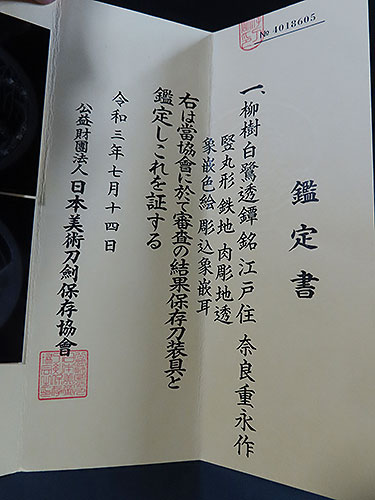 № 4018605
鑑定書
一、柳樹白鷺透鐔 銘 江戸住 奈良重永作
竪丸形 鉄地 肉彫地透
象嵌色絵 彫込象嵌耳
右は當協會に於て審査の結果保存刀装具と
鑑定しこれを証する
令和三年七月十四日
公益財團法人 日本美術刀劍保存協會